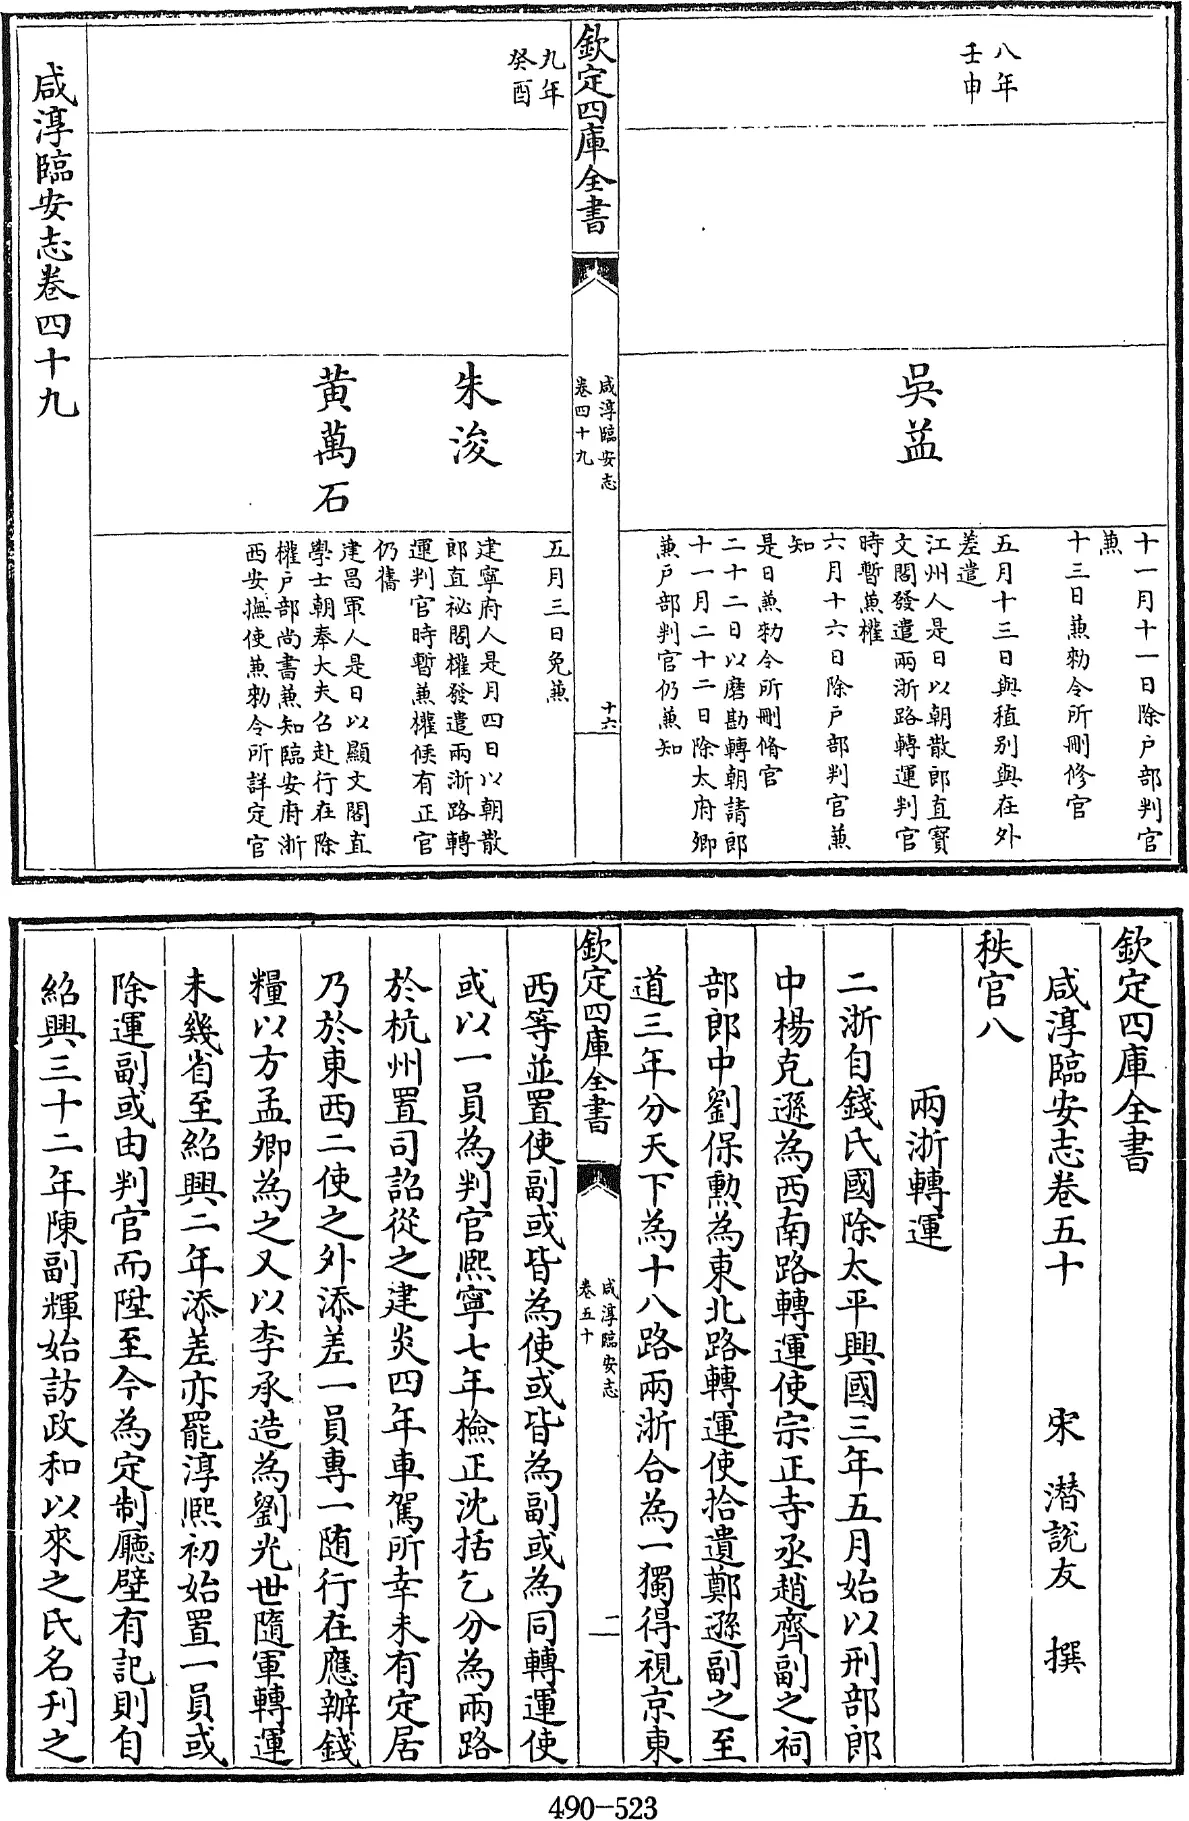 八年
壬申
吳益
十一月十一日除戶部判官
兼
十三日兼勑令所刪修官
五月十三日與稙別與在外
差遣
江州人是日以朝散郎直寳
文閣發遣兩浙路轉運判官
時暫兼權
六月十六日除戶部判官兼
知
是日兼勑令所刪脩官
二十二日以磨勘轉朝請郎
十一月二十二日除太府卿
兼戶部判官仍兼知
欽定四庫全書
咸淳臨安志
卷四十九
十六
九年
癸酉
朱浚
黄萬石
五月三日免兼
建寧府人是月四日以朝散
郎直祕閣權發遣兩浙路轉
運判官時暫兼權候有正官
仍舊
建昌軍人是日以顯文閣直
學士朝奉大夫召赴行在除
權戶部尚書兼知臨安府浙
西安撫使兼勑令所詳定官
咸淳臨安志卷四十九
欽定四庫全書
咸淳臨安志卷五十
宋 潜說友 撰
秩官八
兩浙轉運
二浙自錢氏國除太平興國三年五月始以刑部郎
中楊克遜為西南路轉運使宗正寺丞趙齊副之祠
部郎中劉保勲為東北路轉運使拾遺鄭遜副之至
道三年分天下為十八路兩浙合為一獨得視京東
欽定四庫全書
咸淳臨安志
卷五十
二
西等並置使副或皆為使或皆為副或為同轉運使
或以一員為判官熙寧七年檢正沈括乞分為兩路
於杭州置司詔從之建炎四年車駕所幸未有定居
乃於東西二使之外添差一員專一随行在應辦錢
糧以方孟卿為之又以李承造為劉光世隨軍轉運
未幾省至紹興二年添差亦罷淳熙初始置一員或
除運副或由判官而陞至今為定制廳壁有記則自
紹興三十二年陳副輝始訪政和以來之氏名刋之
490-523